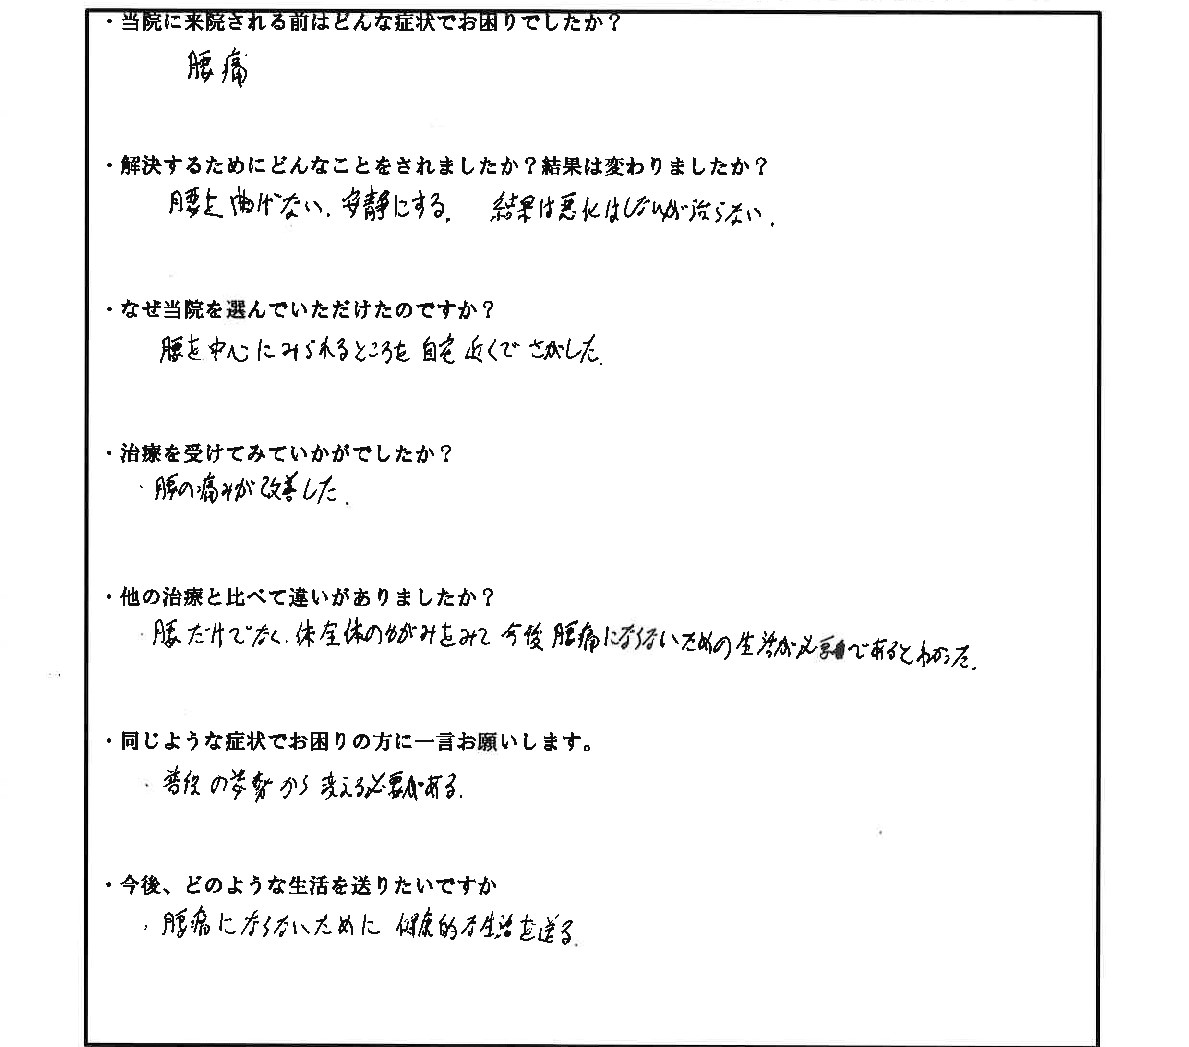 ・当院に来院される前はどんな症状でお困りでしたか？
腰痛
・解決するためにどんなことをされましたか？結果は変わりましたか？
腰を曲げない、安静にする。 結果は悪化はしないが治らない。
・なぜ当院を選んでいただけたのですか？
腰を中心にみられるところを自宅近くでさがした。
・治療を受けてみていかがでしたか？
・腰の痛みが改善した。
・他の治療と比べて違いがありましたか？
・腰だけでなく、体全体のゆがみをみて今後腰痛にならないための生活が必要であるとわかった。
・同じような症状でお困りの方に一言お願いします。
・普段の姿勢から変える必要がある。
・今後、どのような生活を送りたいですか
・腰痛にならないために健康的な生活を送る。